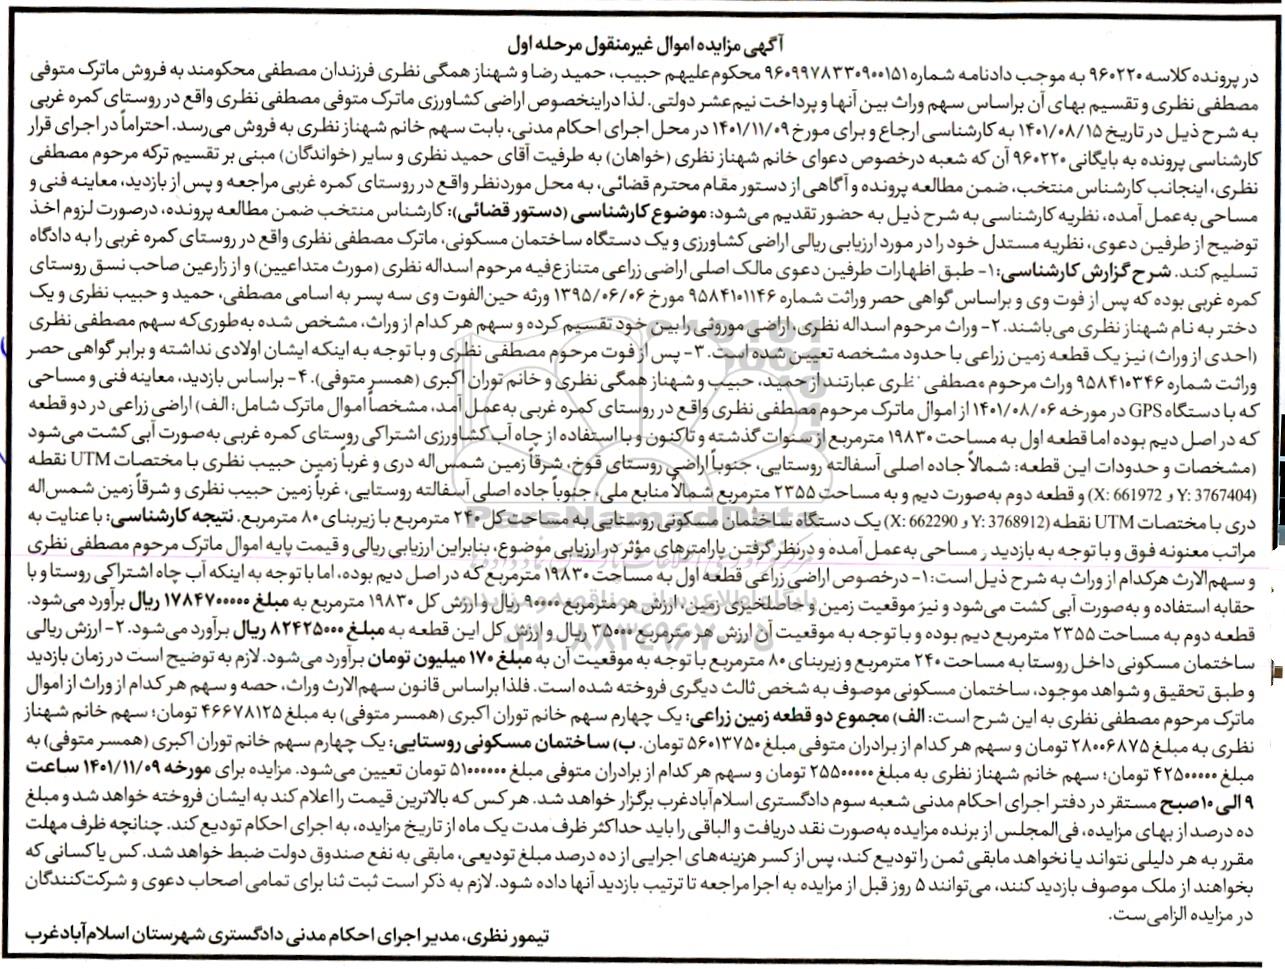 آگهی مزایده اموال غیرمنقول مرحله اول
در پرونده کلاسه ۹۶۰۲۲۰ به موجب دادنامه شماره ۹۶۰۹۹۷۸۳۳۰۹۰۰۱۵۱ محکوم‌علیهم حبیب، حمید رضا و شهناز همگی نظری فرزندان مصطفی محکومند به فروش ماترک متوفی
مصطفی نظری و تقسیم بهای آن براساس سهم وراث بین آنها و پرداخت نیم‌عشر دولتی. لذا دراینخصوص اراضی کشاورزی ماترک متوفی مصطفی نظری واقع در روستای کمره غربی
به شرح ذیل در تاریخ ۱۴۰۱/۰۸/۱۵ به کارشناسی ارجاع و برای مورخ ۱۴۰۱/۱۱/۰۹ در محل اجرای احکام مدنی، بابت سهم خانم شهناز نظری به فروش می‌رسد. احتراماً در اجرای قرار
کارشناسی پرونده به بایگانی ۹۶۰۲۲۰ آن که شعبه درخصوص دعوای خانم شهناز نظری (خواهان) به طرفیت آقای حمید نظری و سایر (خواندگان) مبنی بر تقسیم ترکه مرحوم مصطفی
نظری، اینجانب کارشناس منتخب، ضمن مطالعه پرونده و آگاهی از دستور مقام محترم قضائی، به محل موردنظر واقع در روستای کمره غربی مراجعه و پس از بازدید، معاینه فنی و
مساحی به‌عمل آمده، نظریه کارشناسی به شرح ذیل به حضور تقدیم می‌شود: موضوع کارشناسی (دستور قضائی): کارشناس منتخب ضمن مطالعه پرونده، درصورت لزوم اخذ
توضیح از طرفین دعوی، نظریه مستدل خود را در مورد ارزیابی ریالی اراضی کشاورزی و یک دستگاه ساختمان مسکونی، ماترک مصطفی نظری واقع در روستای کمره غربی را به دادگاه
تسلیم کند. شرح گزارش کارشناسی: ۱- طبق اظهارات طرفین دعوی مالک اصلی اراضی زراعی متنازع‌فیه مرحوم اسداله نظری (مورث متداعیین) و از زارعین صاحب نسق روستای
کمره غربی بوده که پس از فوت وی و براساس گواهی حصر وراثت شماره ۹۵۸۴۱۰۱۱۴۶ مورخ ۱۳۹۵/۰۶/۰۶ ورثه حین‌الفوت وی سه پسر به اسامی مصطفی، حمید و حبیب نظری و یک
دختر به نام شهناز نظری می‌باشند. ۲- وراث مرحوم اسداله نظری، اراضی موروثی را بین خود تقسیم کرده و سهم هر کدام از وراث، مشخص شده به‌طوری‌که سهم مصطفی نظری
(احدی از وراث) نیز یک قطعه زمین زراعی با حدود مشخصه تعیین شده است. ۳- پس از فوت مرحوم مصطفی نظری و با توجه به اینکه ایشان اولادی نداشته و برابر گواهی حصر
وراثت شماره ۹۵۸۴۱۰۳۴۶ وراث مرحوم مصطفی نظری عبارتند از حمید، حبیب و شهناز همگی نظری و خانم توران اکبری (همسر متوفی). ۴- براساس بازدید، معاینه فنی و مساحی
که با دستگاه GPS در مورخه ۱۴۰۱/۰۸/۰۶ از اموال ماترک مرحوم مصطفی نظری واقع در روستای کمره غربی به‌عمل آمد، مشخصاً اموال ماترک شامل: الف) اراضی زراعی در دو قطعه
که در اصل دیم بوده اما قطعه اول به مساحت ۱۹۸۳۰ مترمربع از سنوات گذشته و تاکنون و با استفاده از چاه آب کشاورزی اشتراکی روستای کمره غربی به‌صورت آبی کشت می‌شود
(مشخصات و حدودات این قطعه: شمالاً جاده اصلی آسفالته روستایی، جنوباً اراضی روستای قوخ، شرقاً زمین شمس‌اله دری و غرباً زمین حبیب نظری با مختصات UTM نقطه
(Y: 3767404 و X: 661972) و قطعه دوم به‌صورت دیم و به مساحت ۲۳۵۵ مترمربع شمالاً منابع ملی، جنوباً جاده اصلی آسفالته روستایی، غرباً زمین حبیب نظری و شرقاً زمین شمس‌اله
دری با مختصات UTM نقطه (Y: 3768912 و X: 662290) یک دستگاه ساختمان مسکونی روستایی به مساحت کل ۲۴۰ مترمربع با زیربنای ۸۰ مترمربع. نتیجه کارشناسی: با عنایت به
مراتب معنونه فوق و با توجه به بازدید و مساحی به‌عمل آمده و درنظر گرفتن پارامترهای مؤثر در ارزیابی موضوع، بنابراین ارزیابی ریالی و قیمت پایه اموال ماترک مرحوم مصطفی نظری
و سهم‌الارث هرکدام از وراث به شرح ذیل است: ۱- درخصوص اراضی زراعی قطعه اول به مساحت ۱۹۸۳۰ مترمربع که در اصل دیم بوده، اما با توجه به اینکه آب چاه اشتراکی روستا و با
حقابه استفاده و به‌صورت آبی کشت می‌شود و نیز موقعیت زمین و حاصلخیزی زمین، ارزش هر مترمربع ۹۰،۰۰۰ ریال و ارزش کل ۱۹۸۳۰ مترمربع به مبلغ ۱۷۸۴۷۰۰۰۰۰ ریال برآورد می‌شود.
قطعه دوم به مساحت ۲۳۵۵ مترمربع دیم بوده و با توجه به موقعیت آن ارزش هر مترمربع ۳۵۰۰۰ ریال و ارزش کل این قطعه به مبلغ ۸۲۴۲۵۰۰۰ ریال برآورد می‌شود. ۲- ارزش ریالی
ساختمان مسکونی داخل روستا به مساحت ۲۴۰ مترمربع و زیربنای ۸۰ مترمربع با توجه به موقعیت آن به مبلغ ۱۷۰ میلیون تومان برآورد می‌شود. لازم به توضیح است در زمان بازدید
و طبق تحقیق و شواهد موجود، ساختمان مسکونی موصوف به شخص ثالث دیگری فروخته شده است. فلذا براساس قانون سهم‌الارث وراث، حصه و سهم هر کدام از وراث از اموال
ماترک مرحوم مصطفی نظری به این شرح است: الف) مجموع دو قطعه زمین زراعی: یک چهارم سهم خانم توران اکبری (همسر متوفی) به مبلغ ۴۶۶۷۸۱۲۵ تومان؛ سهم خانم شهناز
نظری به مبلغ ۲۸۰۰۶۸۷۵ تومان و سهم هر کدام از برادران متوفی مبلغ ۵۶۰۱۳۷۵۰ تومان. ب) ساختمان مسکونی روستایی: یک چهارم سهم خانم توران اکبری (همسر متوفی) به
مبلغ ۴۲۵۰۰۰۰۰ تومان؛ سهم خانم شهناز نظری به مبلغ ۲۵۵۰۰۰۰۰ تومان و سهم هر کدام از برادران متوفی مبلغ ۵۱۰۰۰۰۰۰ تومان تعیین می‌شود. مزایده برای مورخه ۱۴۰۱/۱۱/۰۹ ساعت
۹ الی ۱۰ صبح مستقر در دفتر اجرای احکام مدنی شعبه سوم دادگستری اسلام‌آبادغرب برگزار خواهد شد. هر کس که بالاترین قیمت را اعلام کند به ایشان فروخته خواهد شد و مبلغ
ده درصد از بهای مزایده، فی‌المجلس از برنده مزایده به‌صورت نقد دریافت و الباقی را باید حداکثر ظرف مدت یک ماه از تاریخ مزایده، به اجرای احکام تودیع کند. چنانچه ظرف مهلت
مقرر به هر دلیلی نتواند یا نخواهد مابقی ثمن را تودیع کند، پس از کسر هزینه‌های اجرایی از ده درصد مبلغ تودیعی، مابقی به نفع صندوق دولت ضبط خواهد شد. کس یا کسانی که
بخواهند از ملک موصوف بازدید کنند، می‌توانند ۵ روز قبل از مزایده به اجرا مراجعه تا ترتیب بازدید آنها داده شود. لازم به ذکر است ثبت ثنا برای تمامی اصحاب دعوی و شرکت‌کنندگان
در مزایده الزامی‌ست.
تیمور نظری، مدیر اجرای احکام مدنی دادگستری شهرستان اسلام‌آبادغرب
ParsNamadData
پایگاه اطلاع رسانی مناقصه و مزایده
۰۲۱-۸۸۳۴۹۶۷۰-۵